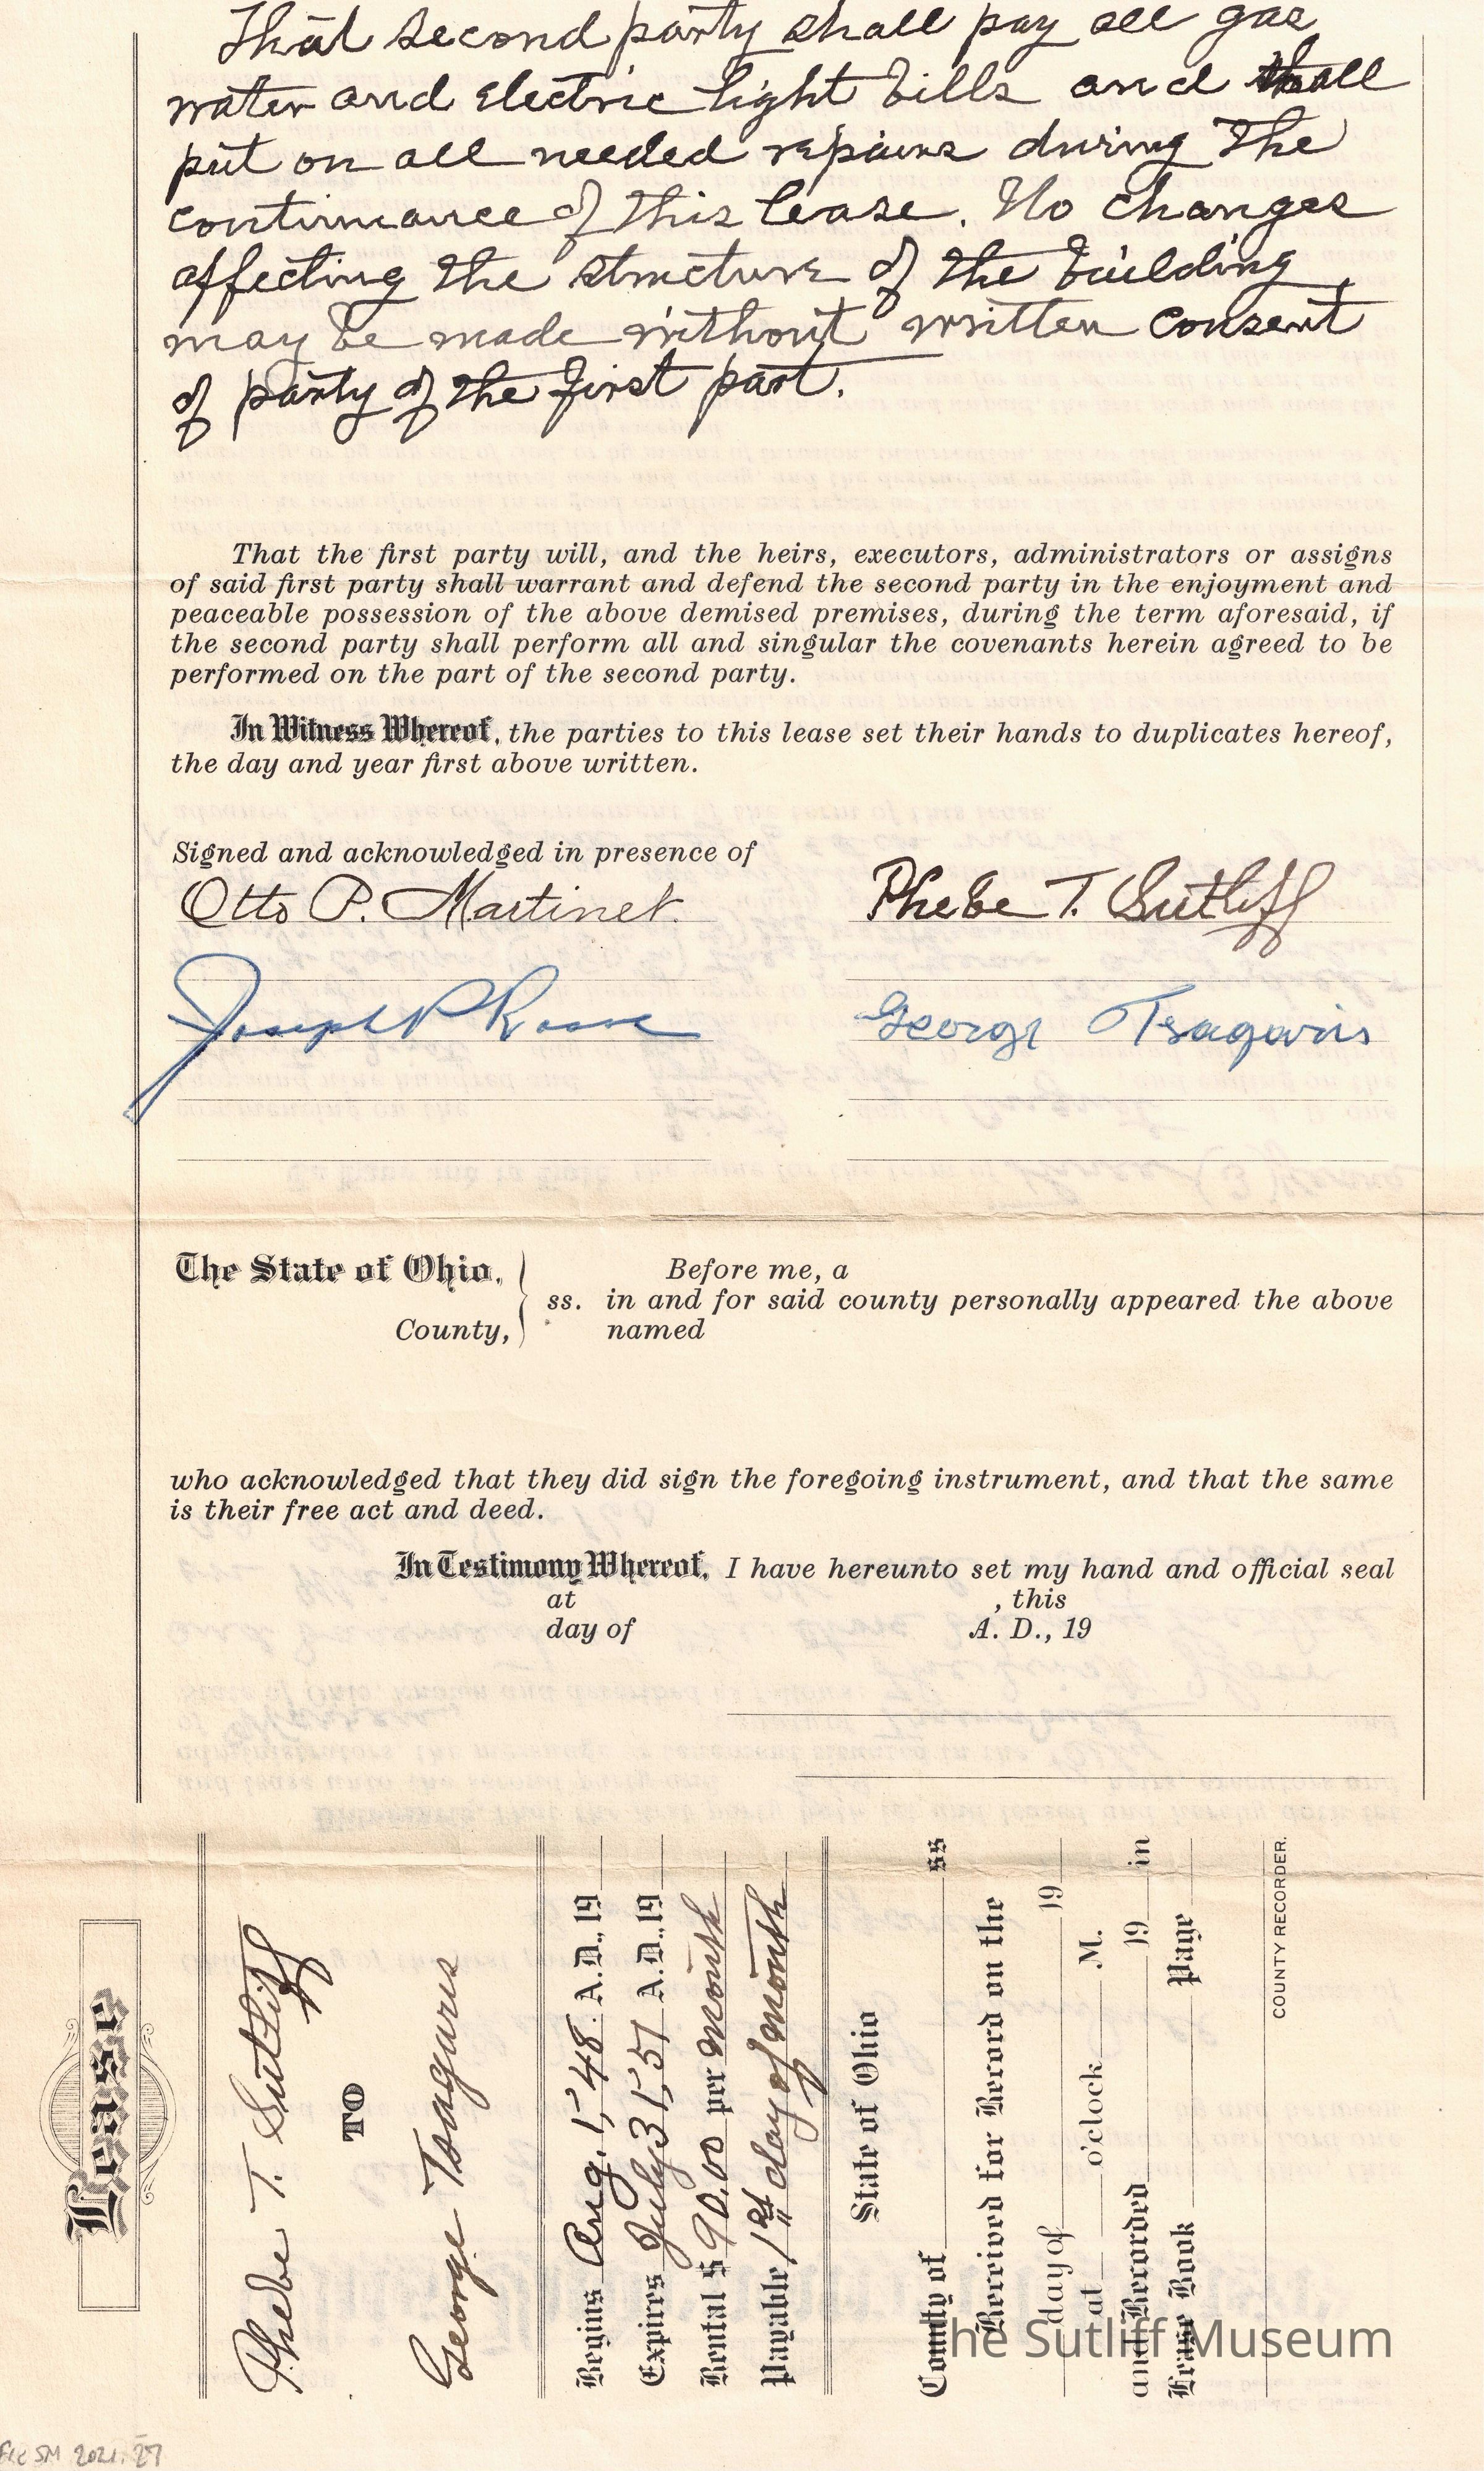 That second party shall pay all gas
water and electric light bills and shall
put on all needed repairs during the
continuance of this lease. No changes
affecting the structure of the building
may be made without written consent
of party of the first part.
That the first party will, and the heirs, executors, administrators or assigns
of said first party shall warrant and defend the second party in the enjoyment and
peaceable possession of the above demised premises, during the term aforesaid, if
the second party shall perform all and singular the covenants herein agreed to be
performed on the part of the second party.
In Witness Whereof, the parties to this lease set their hands to duplicates hereof,
the day and year first above written.
Signed and acknowledged in presence of
Otto P. Martinet
Phebe T. Sutliff
Joseph P Rosse
George Tsagaris
The State of Ohio,
County,
ss.
Before me, a
in and for said county personally appeared the above
named
who acknowledged that they did sign the foregoing instrument, and that the same
is their free act and deed.
In Testimony Whereof, I have hereunto set my hand and official seal
at , this
day of A. D., 19
Lease
Phebe T. Sutliff
TO
George Tsagaris
Begins Aug. 1, '48. A.D., 19
Expires July 31, '51 A.D., 19
Rental $ 90.00 per month
Payable 1st day of month
State of Ohio
County of ss
Received for Record on the
day of 19
at o'clock M.
and Recorded 19 in
Lease Book Page
COUNTY RECORDER.
The Sutliff Museum
SM 2021.27